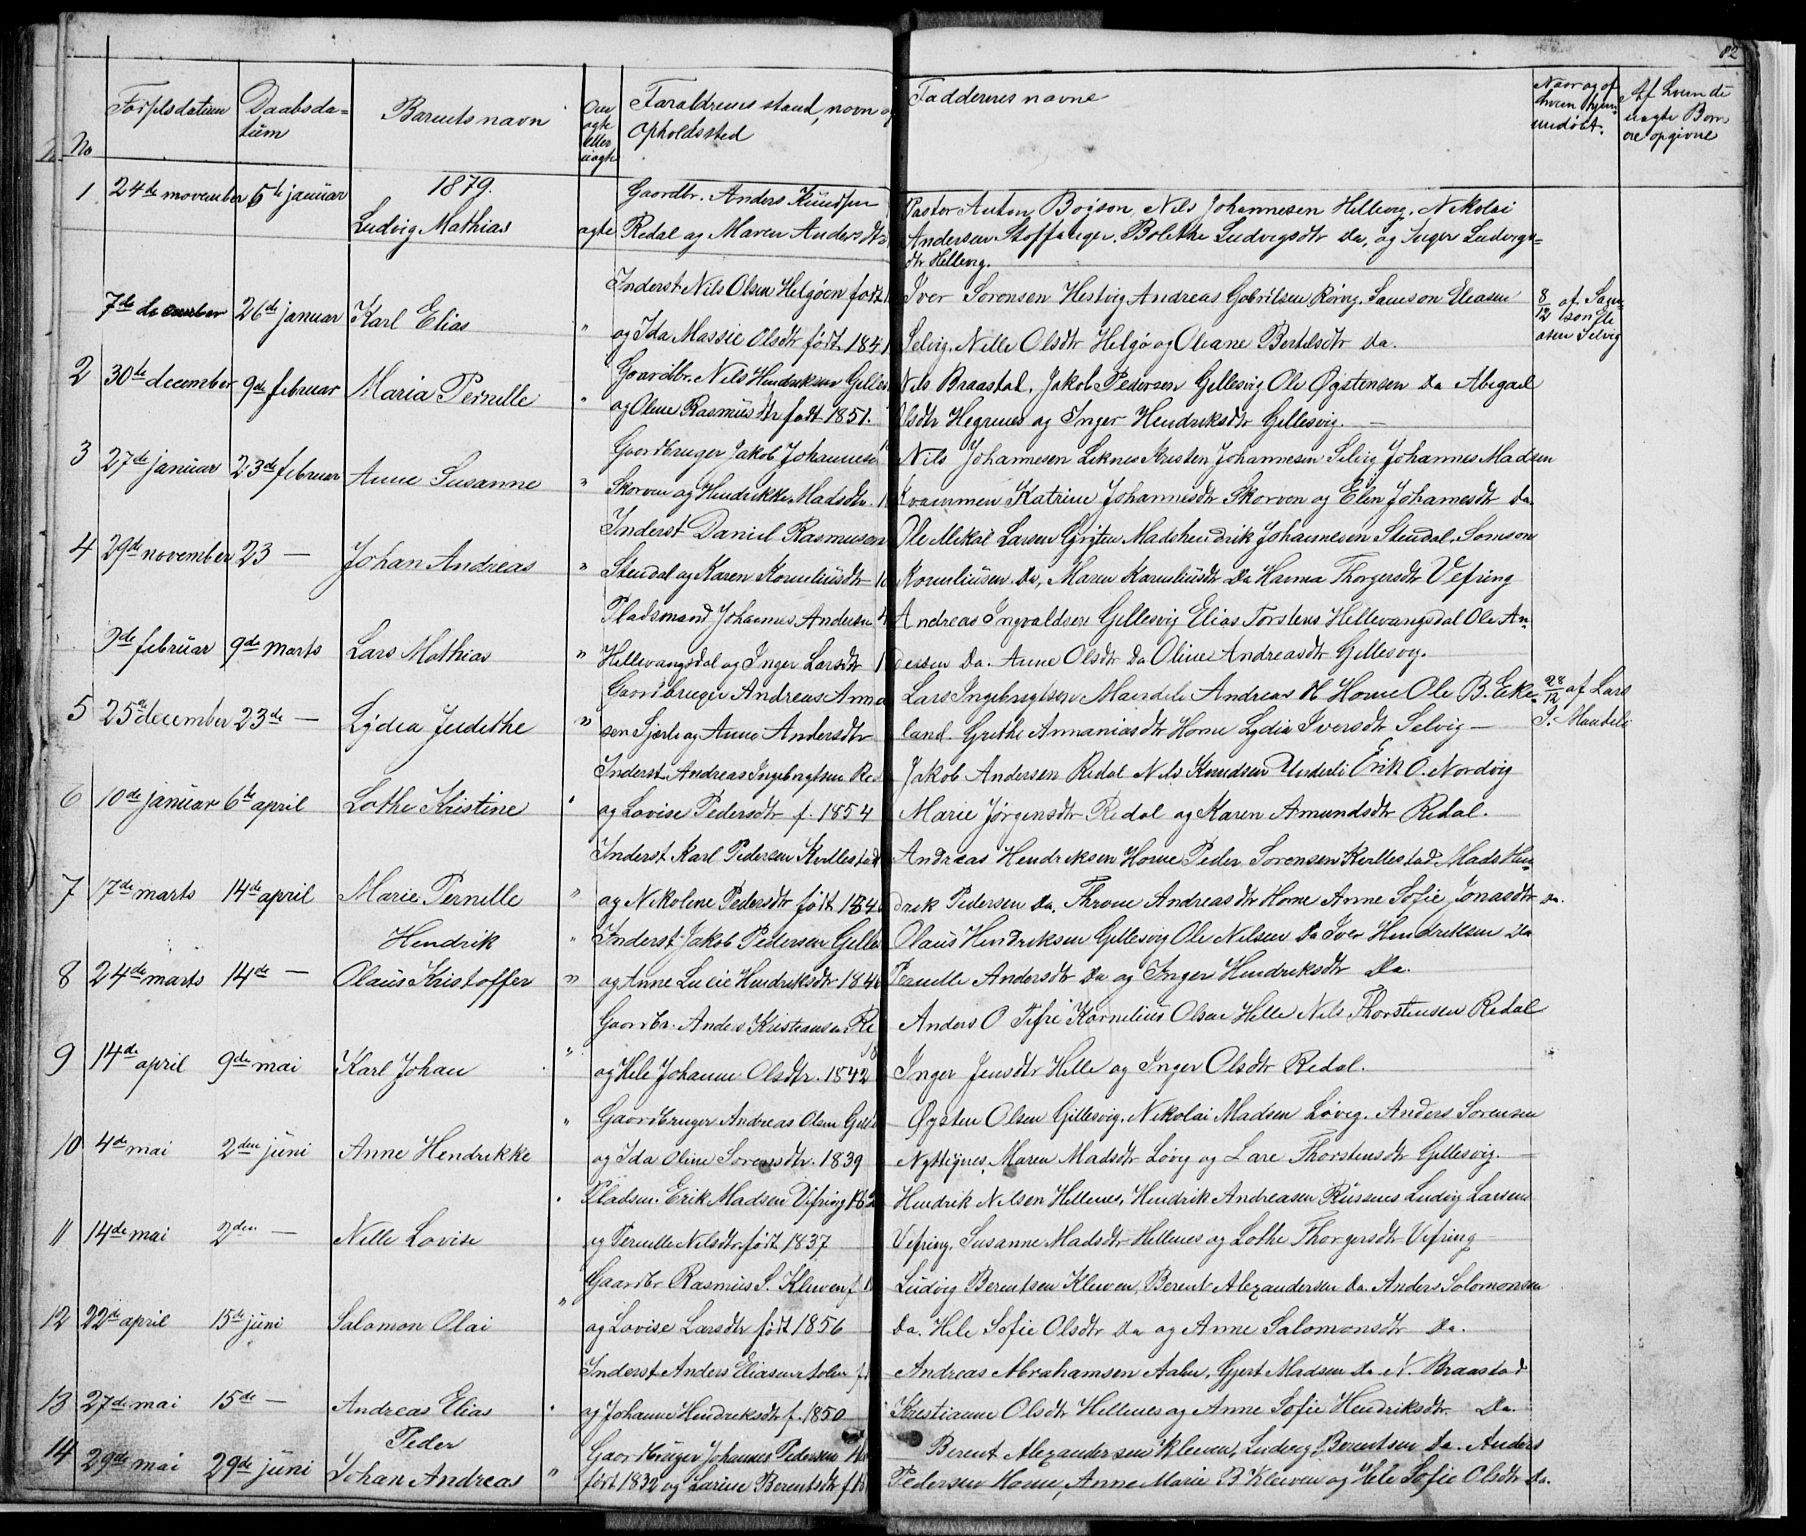 82
No
Fødselsdatum
Daabsda-
tum
Barnets navn
om
ægte
eller
uægte
Forældrenes stand, navn og
opholdssted
Faddernes navne
Naar og af
hvem hjem-
medøbt.
Af hvem de
uægte Børn
ere opgivne
1879.
1 24de november 5te januar Ludvig Mathias ægte
Gaardbr. Anders Knudsen
Redal og Maren Andersdtr
Pastor Anton Boison, Nils Johannesen Hellevig, Nikolai
Andersen Stoffa Inger Bolethe Ludvigsdtr Do, og Inger Ludvigs-
dtr Hellevig.
7de december 26de januar Karl Elias "
Inderst Nils Olsen Helgøen født
og Ida Massie Olsdtr født 1841
Iver Sørensen Hestvig Andreas Gabrilsen Rørvig, Samson Eliasen
Selvig, Nille Olsdtr Helgø og Oleane Bertelsdtr Do.
8/12 af Sam-
son Eli-
asen Selvig
2 30de december 9de februar Maria Pernille "
Gaardbr. Nils Hendriksen Gilles
og Oline Rasmusdtr født 1851.
Nils Braastad, Jakob Pedersen Gillesvig Ole Øystensen Do Abigael
Olsdtr Hegrenes og Inger Hendriksdtr Gillesvig. —
3 27de januar 23de februar Anne Susanne "
Gaardbruger Jakob Johannese
Skorven og Hendrikke Madsdtr. 1
Nils Johannesen Leknes Kristen Johannesen Selvig Johannes Madsen
Kvammen Katrine Johannesdtr Skorven og Elen Johannesdtr Do
4 29de november 23 — Johan Andreas "
Inderst Daniel Rasmusen
Stendal og Karen Korneliusdtr
Ole Mikal Larsen Grytten Madshendrik Johannesen Stendal, Samson
Korneliusen Do, Maren Korneliusdtr Do Hanna Thorgersdtr Vefring
9de februar 9de marts Lars Mathias "
Pladsmand Johannes Andersen
Hillevangsdal og Inger Larsdtr
Andreas Ingvaldsen Gillesvig Elias Torstens Hillevangsdal Ole An-
dersen Do. Anne Olsdtr Do Oline Andreasdtr Gillesvig.
5 25de december 23de — Lydea Judithe "
Gaardbruger Andreas Anna
sen Sjærli og Anne Andersdtr
Lars Ingebrigtsen Maendeli Andreas H Horne Ole B. Eike-
land. Grethe Annaniasdtr Horne Lydia Iversdtr Selvig —
28/12 af Lars
I. Mandeli
6 10de januar 6te april Lothe Kristine "
Inderst Andreas Ingebrigtsen Re
og Lovise Pedersdtr f. 1854
Jakob Andersen Redal Nils Knudsen Underli Erik O. Nordvig
Marie Jørgensdtr Redal og Karen Amundsdtr Redal.
7 17de marts 14de april Marie Pernille "
Inderst Karl Pedersen Kvillestad
og Nikoline Pedersdtr født 184
Andreas Hendriksen Horne Peder Sørensen Kvillestad Mads Hen-
drik Pedersen Do. Throne Andreasdtr Horne Anne Sofie Jonasdtr Do.
8 24de marts 14de — Hendrik "
Olaus Kristoffer "
Inderst Jakob Pedersen Gilles
og Anne Lucie Hendriksdtr 184
Olaus Hendriksen Gillesvig Ole Nilsen Do Iver Hendriksen Do
Pernille Andersdtr Do og Inger Hendriksdtr Do.
9 14de april 9de mai Karl Johan "
Gaardbr. Anders Kristiansen Re
og Hele Johanne Olsdtr. 1842
Anders O Tefre Kornelius Olsen Hille Nils Thorstensen Redal
Inger Jensdtr Hille og Inger Olsdtr Redal.
10 4de mai 2den juni Anne Hendrikke "
Gaardbruger Andreas Olsen Gill
og Ida Oline Sørensdtr. 1839
Øysten Olsen Gillesvig, Nikolai Madsen Løvig. Anders Sørensen
Nyttignes, Maren Madsdtr Løvig og Lare Thorstensdtr Gillesvig. —
11 14de mai 2den — Nille Lovise "
Pladsm. Erik Madsen Vefring
og Pernille Nilsdtr. født 1837
Hendrik Nilsen Hellenes, Hendrik Andreasen Russenes Ludvig Larsen
Vefring, Susanne Madsdtr Hellenes og Lothe Thorgersdtr Vefring
12 22de april 15de juni Salamon Olai "
Gaardbr Rasmus S. Kleiven f. 1
og Lovise Larsdtr født 1856
Ludvig Berentsen Kleiven, Berent Alexandersen Do. Anders Solomonsen
Do. Hele Sofie Olsdtr Do og Anne Salomonsdtr Do.
13 27de mai 15de — Andreas Elias "
Inderst Anders Eliasen Aalen
og Johanne Hendriksdtr f. 1850
Andreas Abrahamsen Aalen, Gjert Madsen Do N. Braastad
Kristianne Olsdtr Hellenes og Anne Sofie Hendriksdtr. Do.
14 29de mai 29de juni Peder
Johan Andreas "
Gaardbruger Johannes Pedersen Ho
født 1832 og Larine Berentsdtr f.
Berent Alexandersen Kleiven, Ludvig Berentsen Do. Anders
Pedersen Horne, Anne Marie B Kleiven og Hele Sofie Olsdtr Do.